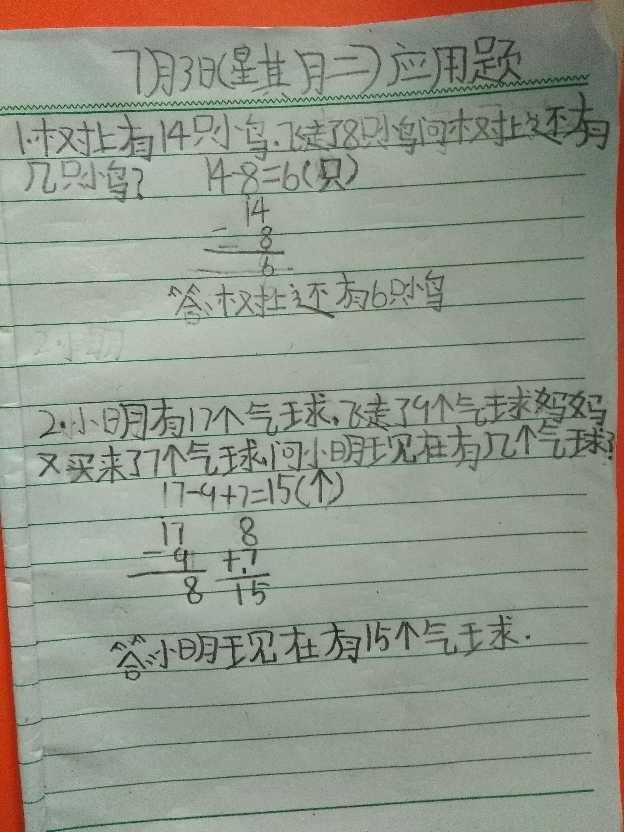 7月3日(星期二)应用题
1.树上有14只小鸟.飞走了8只小鸟问树上还有
几只小鸟?  14-8=6(只)
14
- 8
6
答:树上还有6只小鸟
2.小明
2.小明有17个气球,飞走了9个气球妈妈
又买来了7个气球,问小明现在有几个气球?
17-9+7=15(个)
17  8
- 9  +7
8  15
答:小明现在有15个气球.